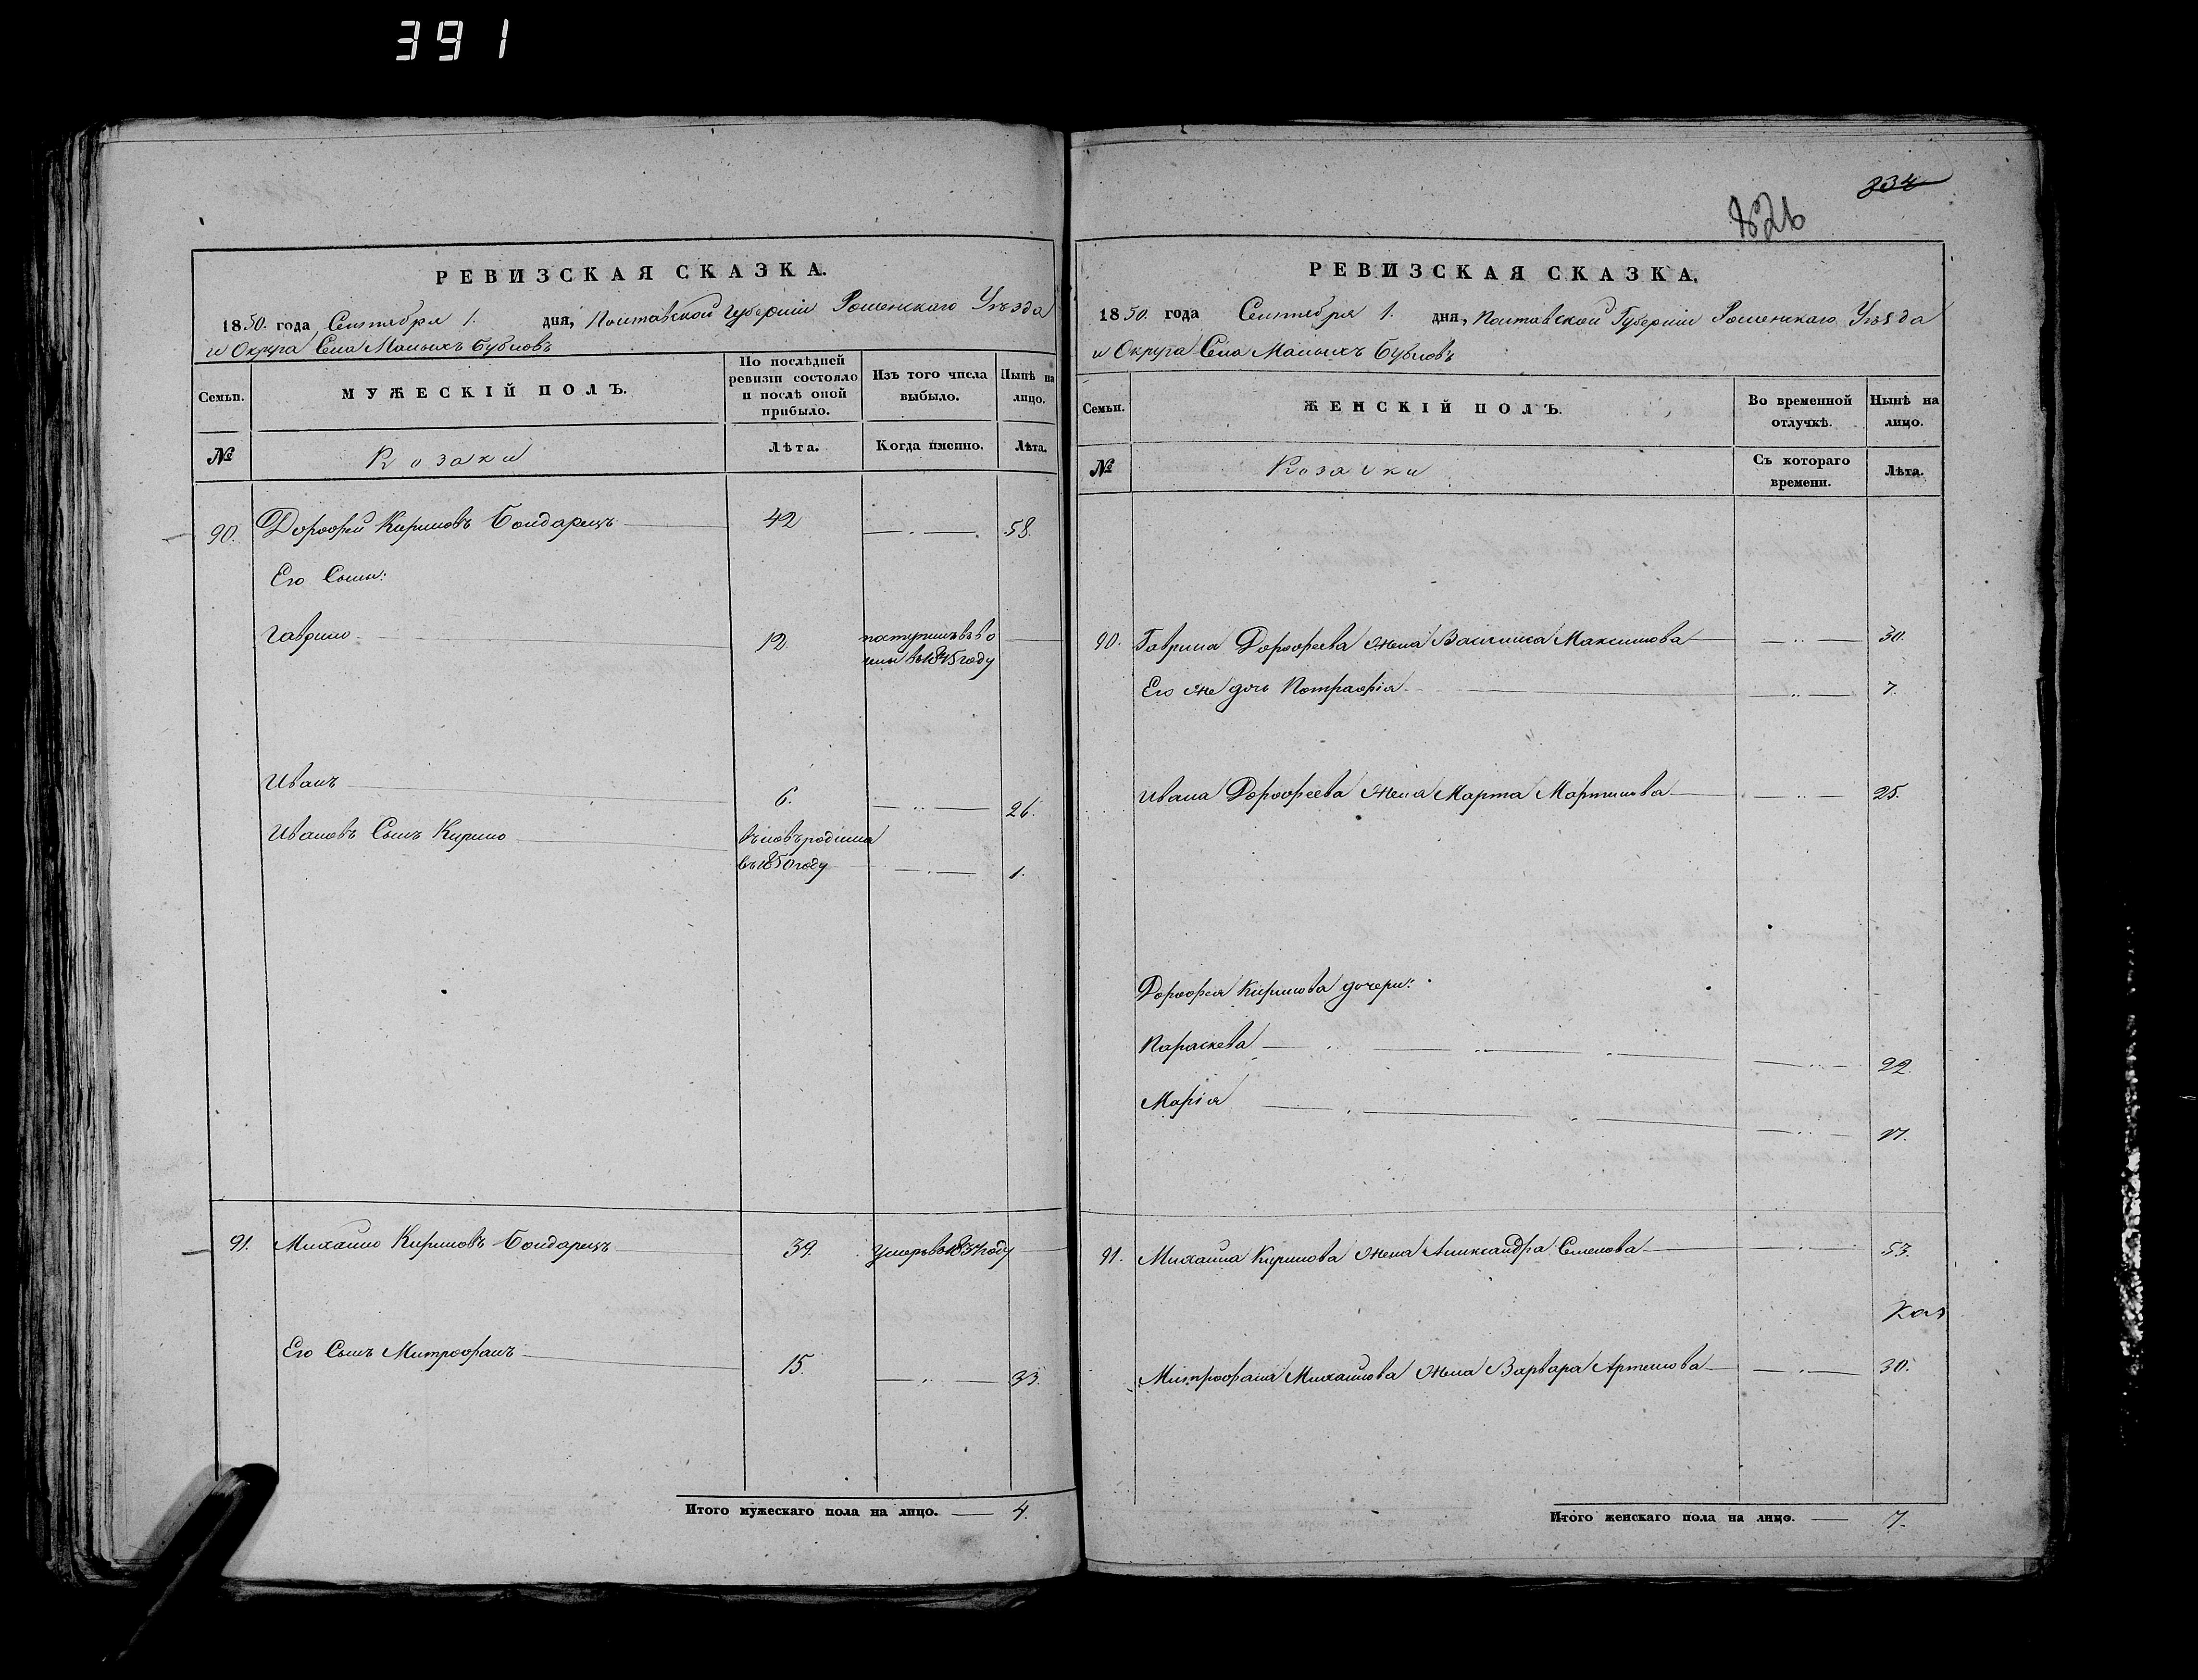 391
РЕВИЗСКАЯ СКАЗКА.
1850. года Сентября 1. дня, Полтавской Губерніи Роменскаго Уѣзда
и Округа Села Малыхъ Бубновъ
Семьи.
МУЖЕСКІЙ ПОЛЪ.
По послѣдней
ревизіи состояло
и послѣ оной
прибыло.
Изъ того числа
выбыло.
Нынѣ на
лицо.
№
Козаки
Лѣта.
Когда именно.
Лѣта.
90. Дорофей Кириловъ Бондарецъ 42 58.
Его Сыны:
Гаврило 12. поступилъ въ во
ены въ 1845 году
Иванъ 6. 26.
Ивановъ Сынъ Кирило вновь родился
въ 1850 году 1.
91. Михайло Кириловъ Бондарецъ 39. умеръ въ 1837 году
Его Сынъ Митрофанъ 15. 33.
Итого мужескаго пола на лицо. 4.
234
826
РЕВИЗСКАЯ СКАЗКА.
1850. года Сентября 1. дня, Полтавской Губерніи Роменскаго Уѣзда
и Округа Села Малыхъ Бубновъ
Семьи.
ЖЕНСКІЙ ПОЛЪ.
Во временной
отлучкѣ.
Нынѣ на
лицо.
№
Козачки
Съ котораго
времени.
Лѣта.
90. Гаврила Дорофеева жена Василиса Максимова 30.
Его же дочь Евтрафія 7.
Ивана Дорофеева жена Марта Мартинова 25.
Дорофея Кирилова дочери:
Параскева 22.
Марія 17.
91. Михайла Кирилова жена Александра Семенова 53.
Митрофана Михайлова жена Варвара Артемова 30.
Итого женскаго пола на лицо. 7.